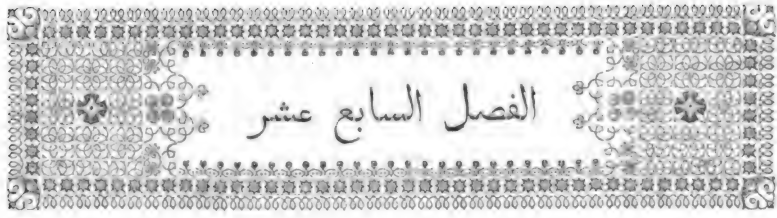 الفصل السابع عشر